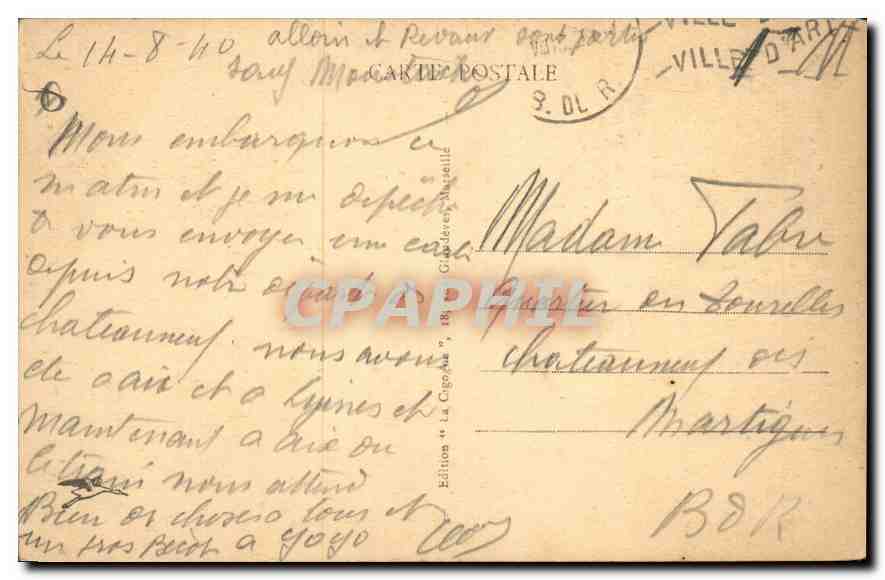 Le 14-8-40 alloin et Revaux sont partis
sauf
CARTE POSTALE
VILLE D'ART
B. DU R.
Nous embarquons ce
matin et je me dépêche
de vous envoyer une carte
depuis notre départ de
chateauneuf. nous avons
ete a aix et a Lyines et
maintenant a aix ou
le train nous attend
Bien de choses a tous et
un gros Becot a yoyo
Edition "La Cigogne", 18, Glandevès, Marseille
Madame Fabre
Quartier des Tourelles
Chateauneuf les
Martigues
B d R
CPAPHIL